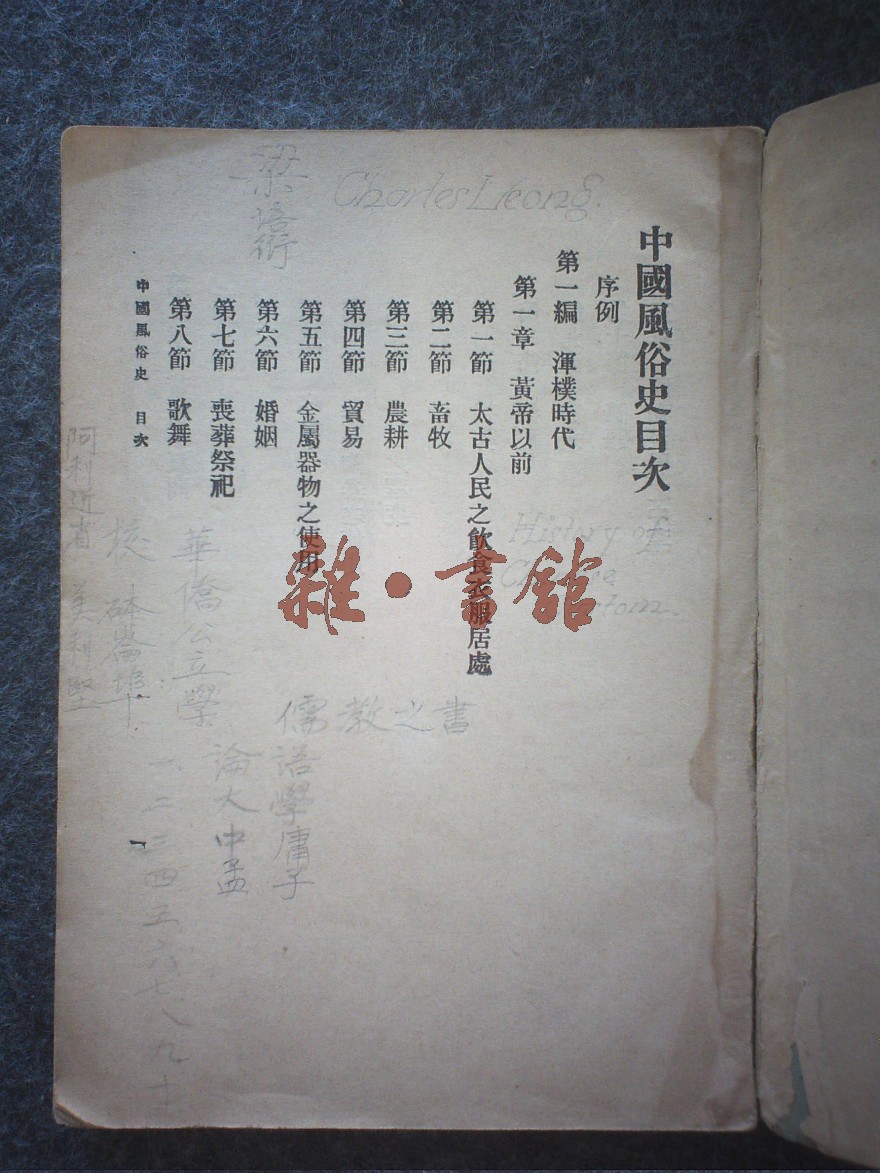 中國風俗史目次
序例
第一編 渾樸時代
第一章 黃帝以前
第一節 太古人民之飲食衣服居處
第二節 畜牧
第三節 農耕
第四節 貿易
第五節 金屬器物之使用
第六節 婚姻
第七節 喪葬祭祀
第八節 歌舞
中國風俗史 目次
梁培衍
Charles Leong.
History of
Custom.
雜·書館
儒教之書
語學庸子
論大中孟
華僑公立學
校 砵崙埠
阿利近省 美利堅
一二三四五六七八九十